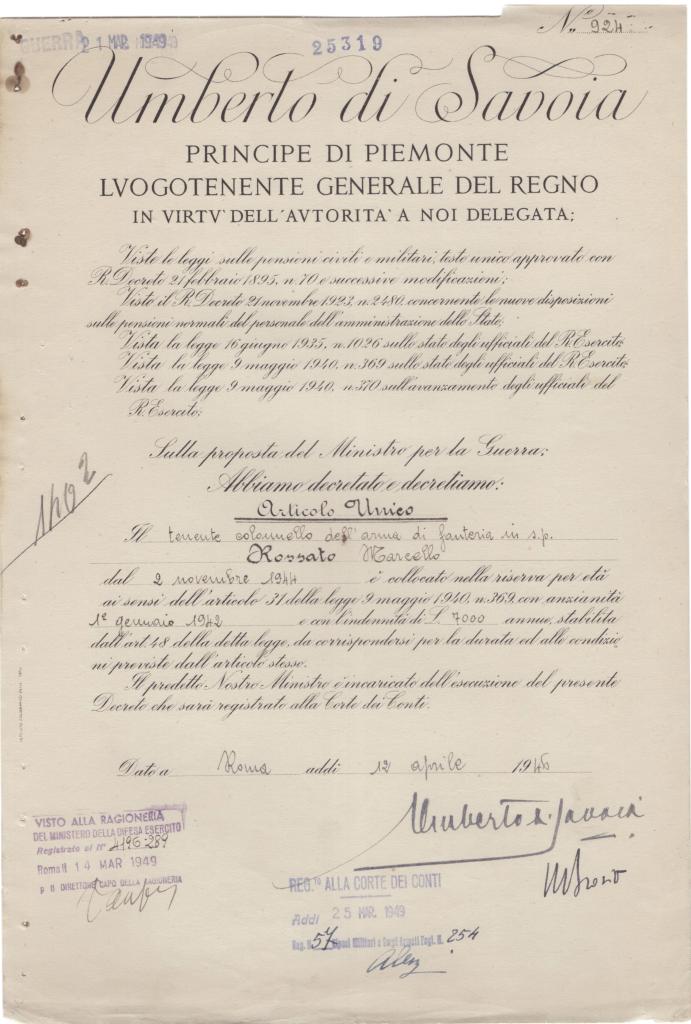 GUERRA 21 MAR 1949
25319
N° 924
Umberto di Savoia
PRINCIPE DI PIEMONTE
LVOGOTENENTE GENERALE DEL REGNO
IN VIRTV' DELL'AVTORITA' A NOI DELEGATA;
Viste le leggi sulle pensioni civili e militari, testo unico approvato con
R. Decreto 21 febbraio 1895, n. 70 e successive modificazioni;
Visto il R. Decreto 21 novembre 1923, n. 2480, concernente le nuove disposizioni
sulle pensioni normali del personale dell'amministrazione dello Stato;
Vista la legge 16 giugno 1935, n. 1026 sullo stato degli ufficiali del R. Esercito;
Vista la legge 9 maggio 1940, n. 369 sullo stato degli ufficiali del R. Esercito;
Vista la legge 9 maggio 1940, n. 370 sull'avanzamento degli ufficiali del
R. Esercito;
Sulla proposta del Ministro per la Guerra;
Abbiamo decretato e decretiamo:
Articolo Unico
Il tenente colonnello dell'arma di fanteria in s.p.
Rossato Marcello
dal 2 novembre 1944 è collocato nella riserva per età
ai sensi dell'articolo 31 della legge 9 maggio 1940, n. 369, con anzianità
1° gennaio 1942 e con l'indennità di L. 7000 annue, stabilita
dall'art. 48 della detta legge, da corrispondersi per la durata ed alle condizio
ni previste dall'articolo stesso.
Il predetto Nostro Ministro è incaricato dell'esecuzione del presente
Decreto che sarà registrato alla Corte dei Conti.
Dato a Roma addì 12 aprile 1946
Umberto di Savoia
VISTO ALLA RAGIONERIA
DEL MINISTERO DELLA DIFESA ESERCITO
Registrato al N° 4196-289
Roma li 14 MAR 1949
p IL DIRETTORE CAPO DELLA RAGIONERIA
REG.TO ALLA CORTE DEI CONTI
Addì 25 MAR. 1949
Reg. N. 57 Militari e Corpi Fogl. N. 254